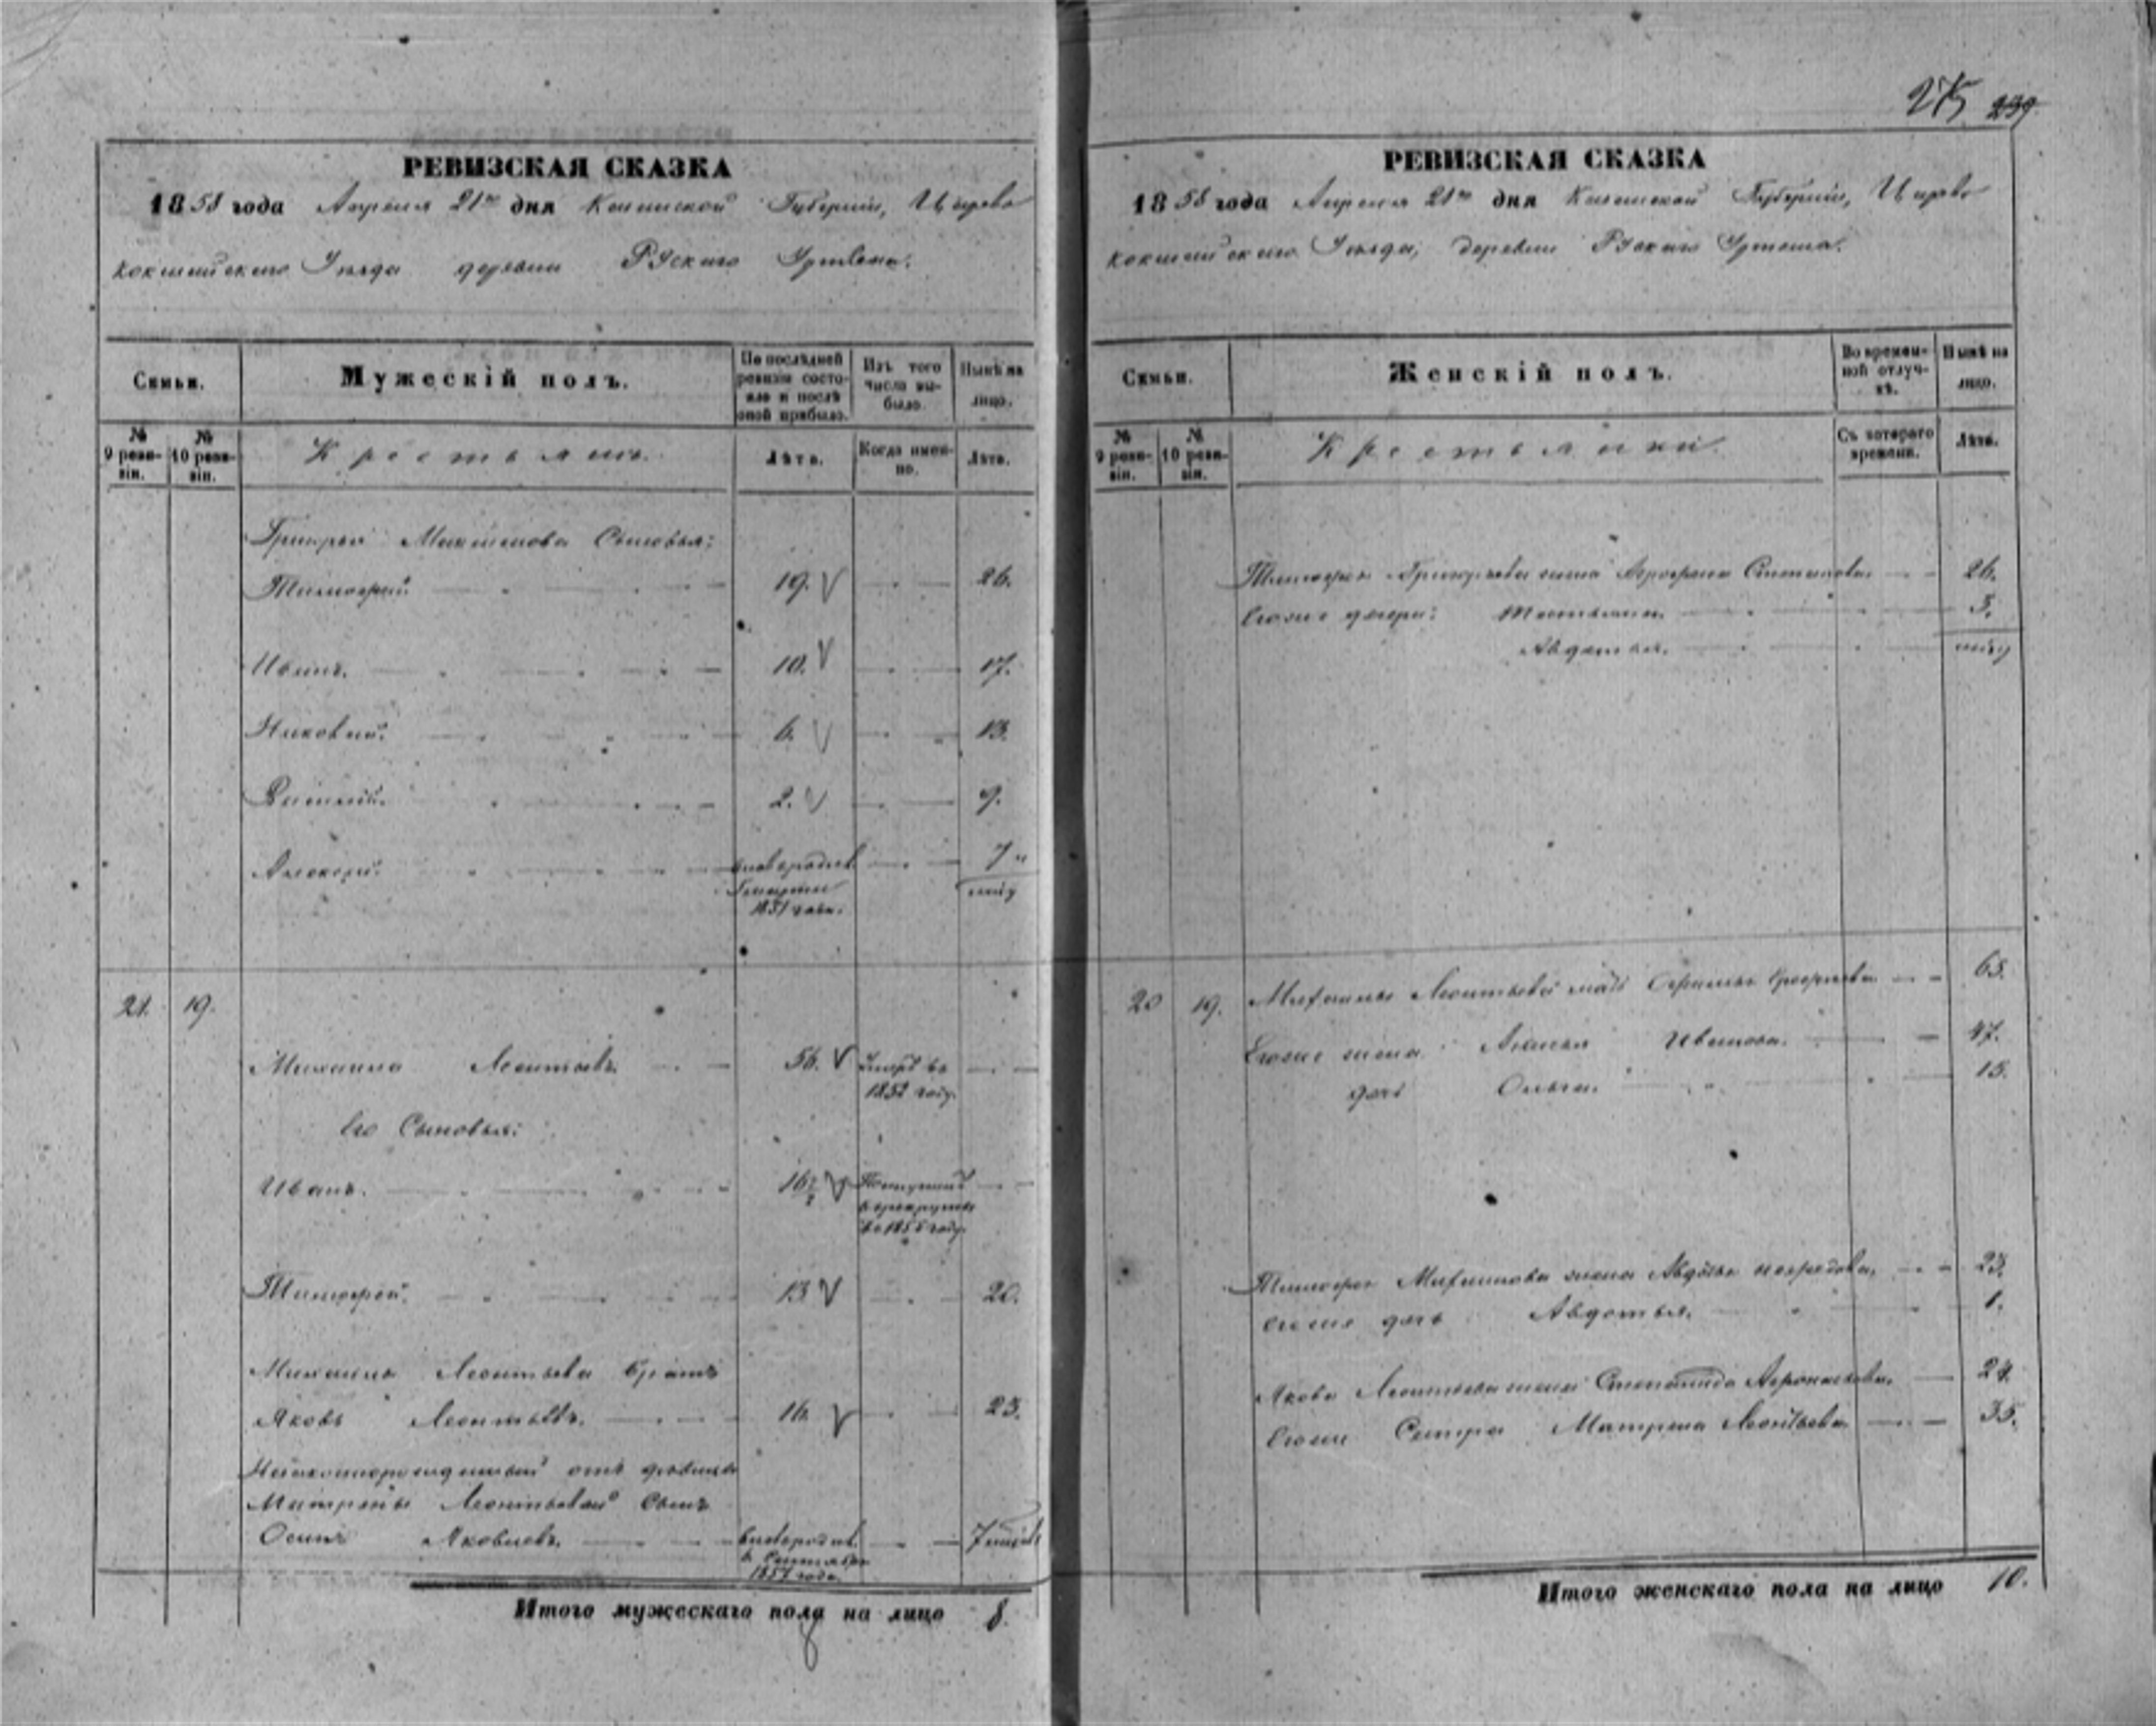 275 239
РЕВИЗСКАЯ СКАЗКА
1858 года Апреля 21го дня Казанской Губернии, Царево
кокшайскаго Уезда деревни Рускаго Уртема.
Семьи.
Мужескій полъ.
По послѣдней ревизіи состояло и послѣ оной прибыло.
Изъ того числа выбыло.
Нынѣ на лицо.
№ 9 ревизіи.
№ 10 ревизіи.
Крестьянъ.
Лѣта.
Когда именно.
Лѣта.
Григорья Максимова Сыновья:
Тимофей 19. 26.
Иванъ. 10. 17.
6. 13.
Василій. 2. 9.
Алексей. 7
1851 года.
21. 19.
Михаила Леонтьевъ 56. Умеръ въ
1852 году.
Его Сыновья:
Иванъ. 16 1/2 Поступилъ
в рекруты
в 1855 году.
Тимофей. 13 20.
Михаила Леонтьева братъ
Яковъ Леонтьевъ. 16 23.
Незаконнорожденный отъ девицы
Матрены Леонтьевой Сынъ
Осипъ Яковлевъ. 7
в Сентябре
1857 года.
Итого мужескаго пола на лицо 8.
РЕВИЗСКАЯ СКАЗКА
1858 года Апреля 21го дня Казанской Губернии, Царево
кокшайскаго Уезда, деревни Рускаго Уртема.
Семьи.
Женскій полъ.
Во временной отлучкѣ.
Нынѣ на лицо.
№ 9 ревизіи.
№ 10 ревизіи.
Крестьянки.
Съ котораго времени.
Лѣта.
Тимофея Григорьева жена Степанова 26.
Егоже дочери: Татьяна. 3.
Авдотья.
20 19. Михаила Леонтьева мать 65.
Егоже жена Иванова. 47.
дочь Ольга. 15.
Тимофея Михаилова жена 23.
Егоже дочь Авдотья. 1.
Якова Леонтьева жена Степанида 24.
Егоже Сестра Матрена Леонтьева 35.
Итого женскаго пола на лицо 10.